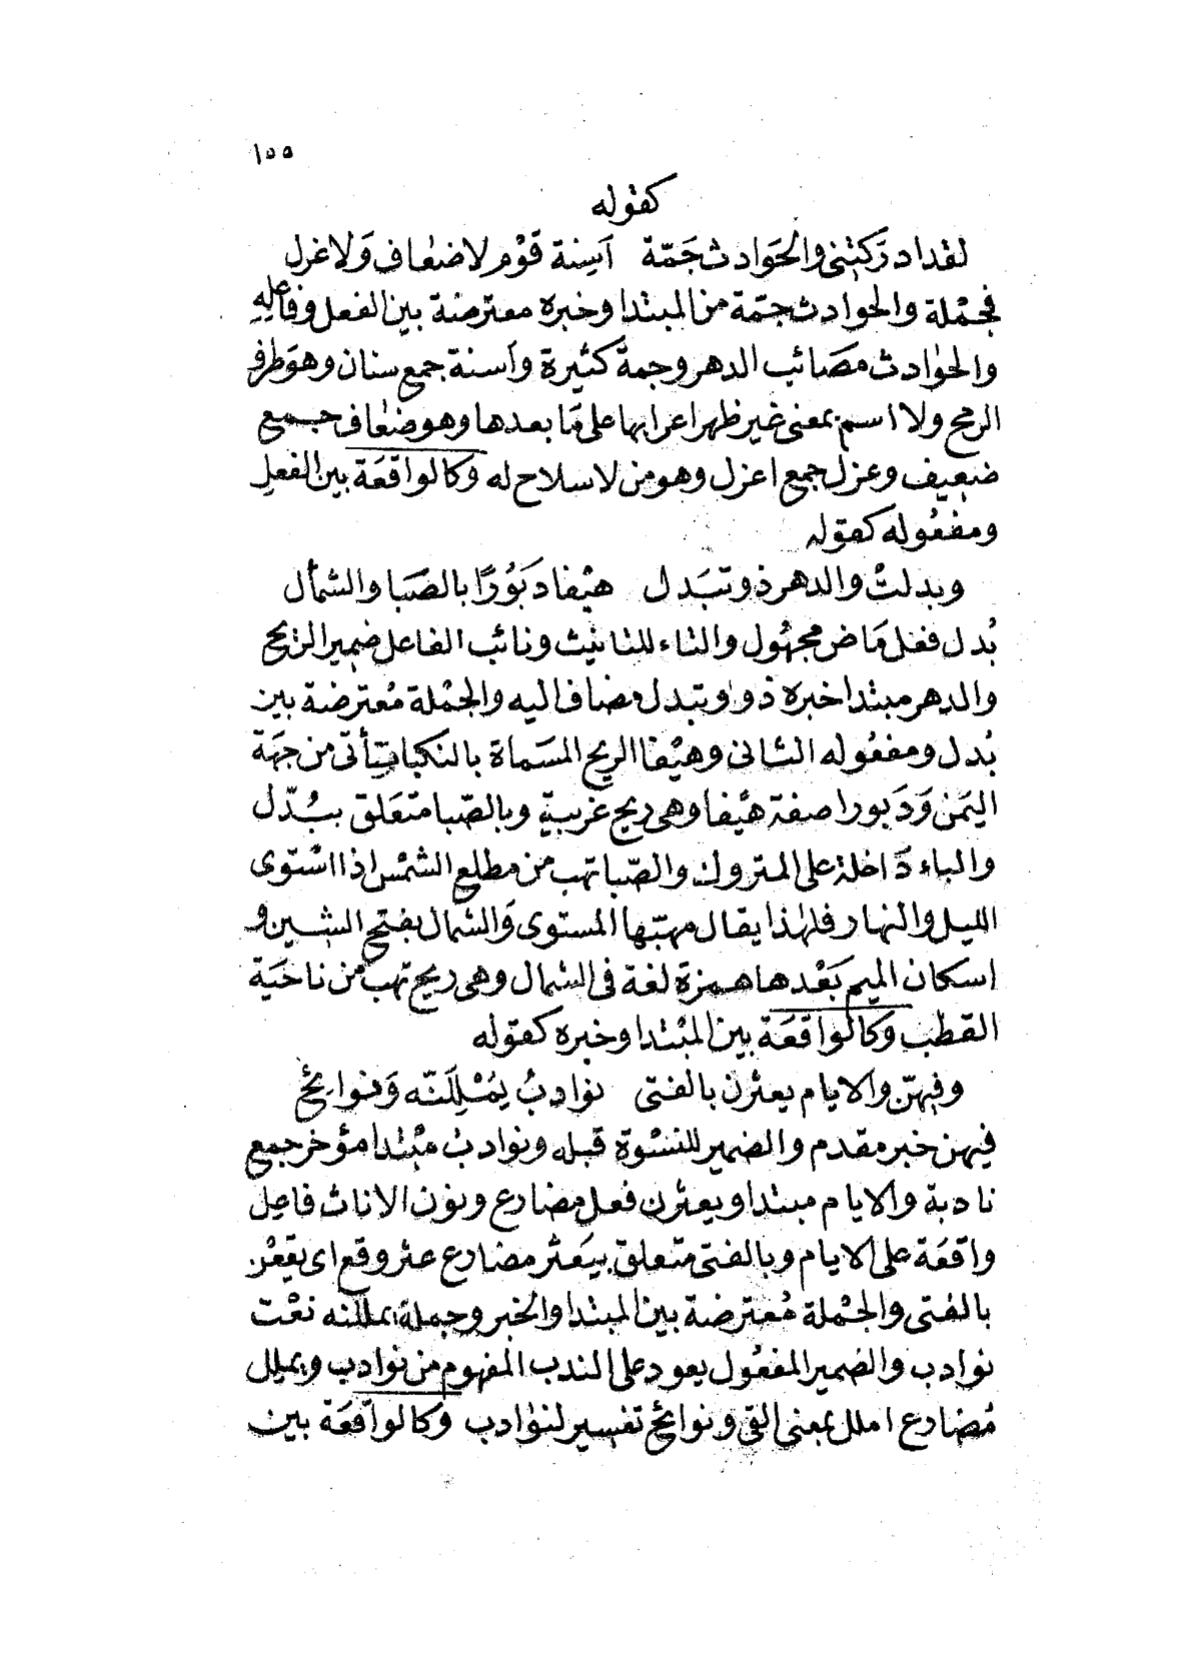 ١٥٥
كقوله
لقد ادركتنى والحَوادث جَمّة اَسِنة قَوْم لا ضعاف وَلا غزل
فجمْلة والحوادث جمّة من المبتدا وخبره معترضة بين الفعل وفاعلِهِ
والحوادث مصَائب الدهر وجمة كثيرة واَسنة جمع سنان وهوَ طرف
الرمح ولا اسم بمعنى غير ظهر اعرابها على مَا بعدها وهو ضعاف جمع
ضعيف وعزل جمع اعزل وهو من لا سلاح له وَكالواقعَة بين الفعلِ
ومفعُوله كقوله
وبدلتْ والدهر ذو تبَدل هيْفا دَبَوُرًا بالصَبا والشمأل
بُدل فعل مَاض مجهُول والتاء للتانيث ونائب الفاعل ضمير الريح
والدهر مبتدا خبره ذو وتبدل مضاف اليه والجمْلة مُعترضة بين
بُدل ومفعُوله الثانى وهيْفا الريح المسَماة بالنكبا تأتى من جهَة
اليَمن وَدَبورا صفة هيْفا وهى ريح غربية وبالصّبا متعَلق ببُدّل
والباء دَاخلة على المتروك والصّبا تهب من مطلع الشمْس اذا اسْتوى
الليل والنهار فلهٰذا يقال مهبّها المستوى وَالشمال بفتح الشين و
اسكان الميم بَعْدها همزة لغة فى الشمال وهى ريح تهب من ناحيَة
القطب وَكالواقعَة بين المبْتدا وخبره كقوله
وفيهنّ والايام يعثرن بالفتى نوادبُ يَمْلِلَنّه وَنوايح
فيهن خبر مقدم والضمير للنسْوة قبله ونوادب مبْتدا مؤخر جمع
نادبة والايام مبتدا ويعثرن فعل مضارع ونون الاناث فاعل
واقعَة على الايام وبالفتى متعلق بيَعثر مضارع عثر وقع اى يقعْن
بالفتى والجمْلة مُعترضة بين المبتدا والخبر وجملة يمللنه نعْت
نوادب والضمير المفعُول يعود على الندب المفهوم من نوادب ويملل
مُضارع املل بمعنى القى ونوائح تفسير لنوادب وَكالواقعَة بين